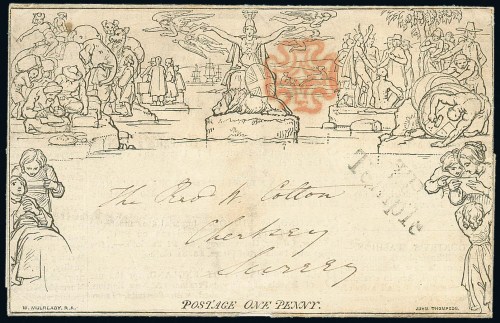 Temple
The Revd W. Cotton
Chertsey
Surrey
POSTAGE ONE PENNY.
W. MULREADY, R.A.
JOHN THOMPSON.